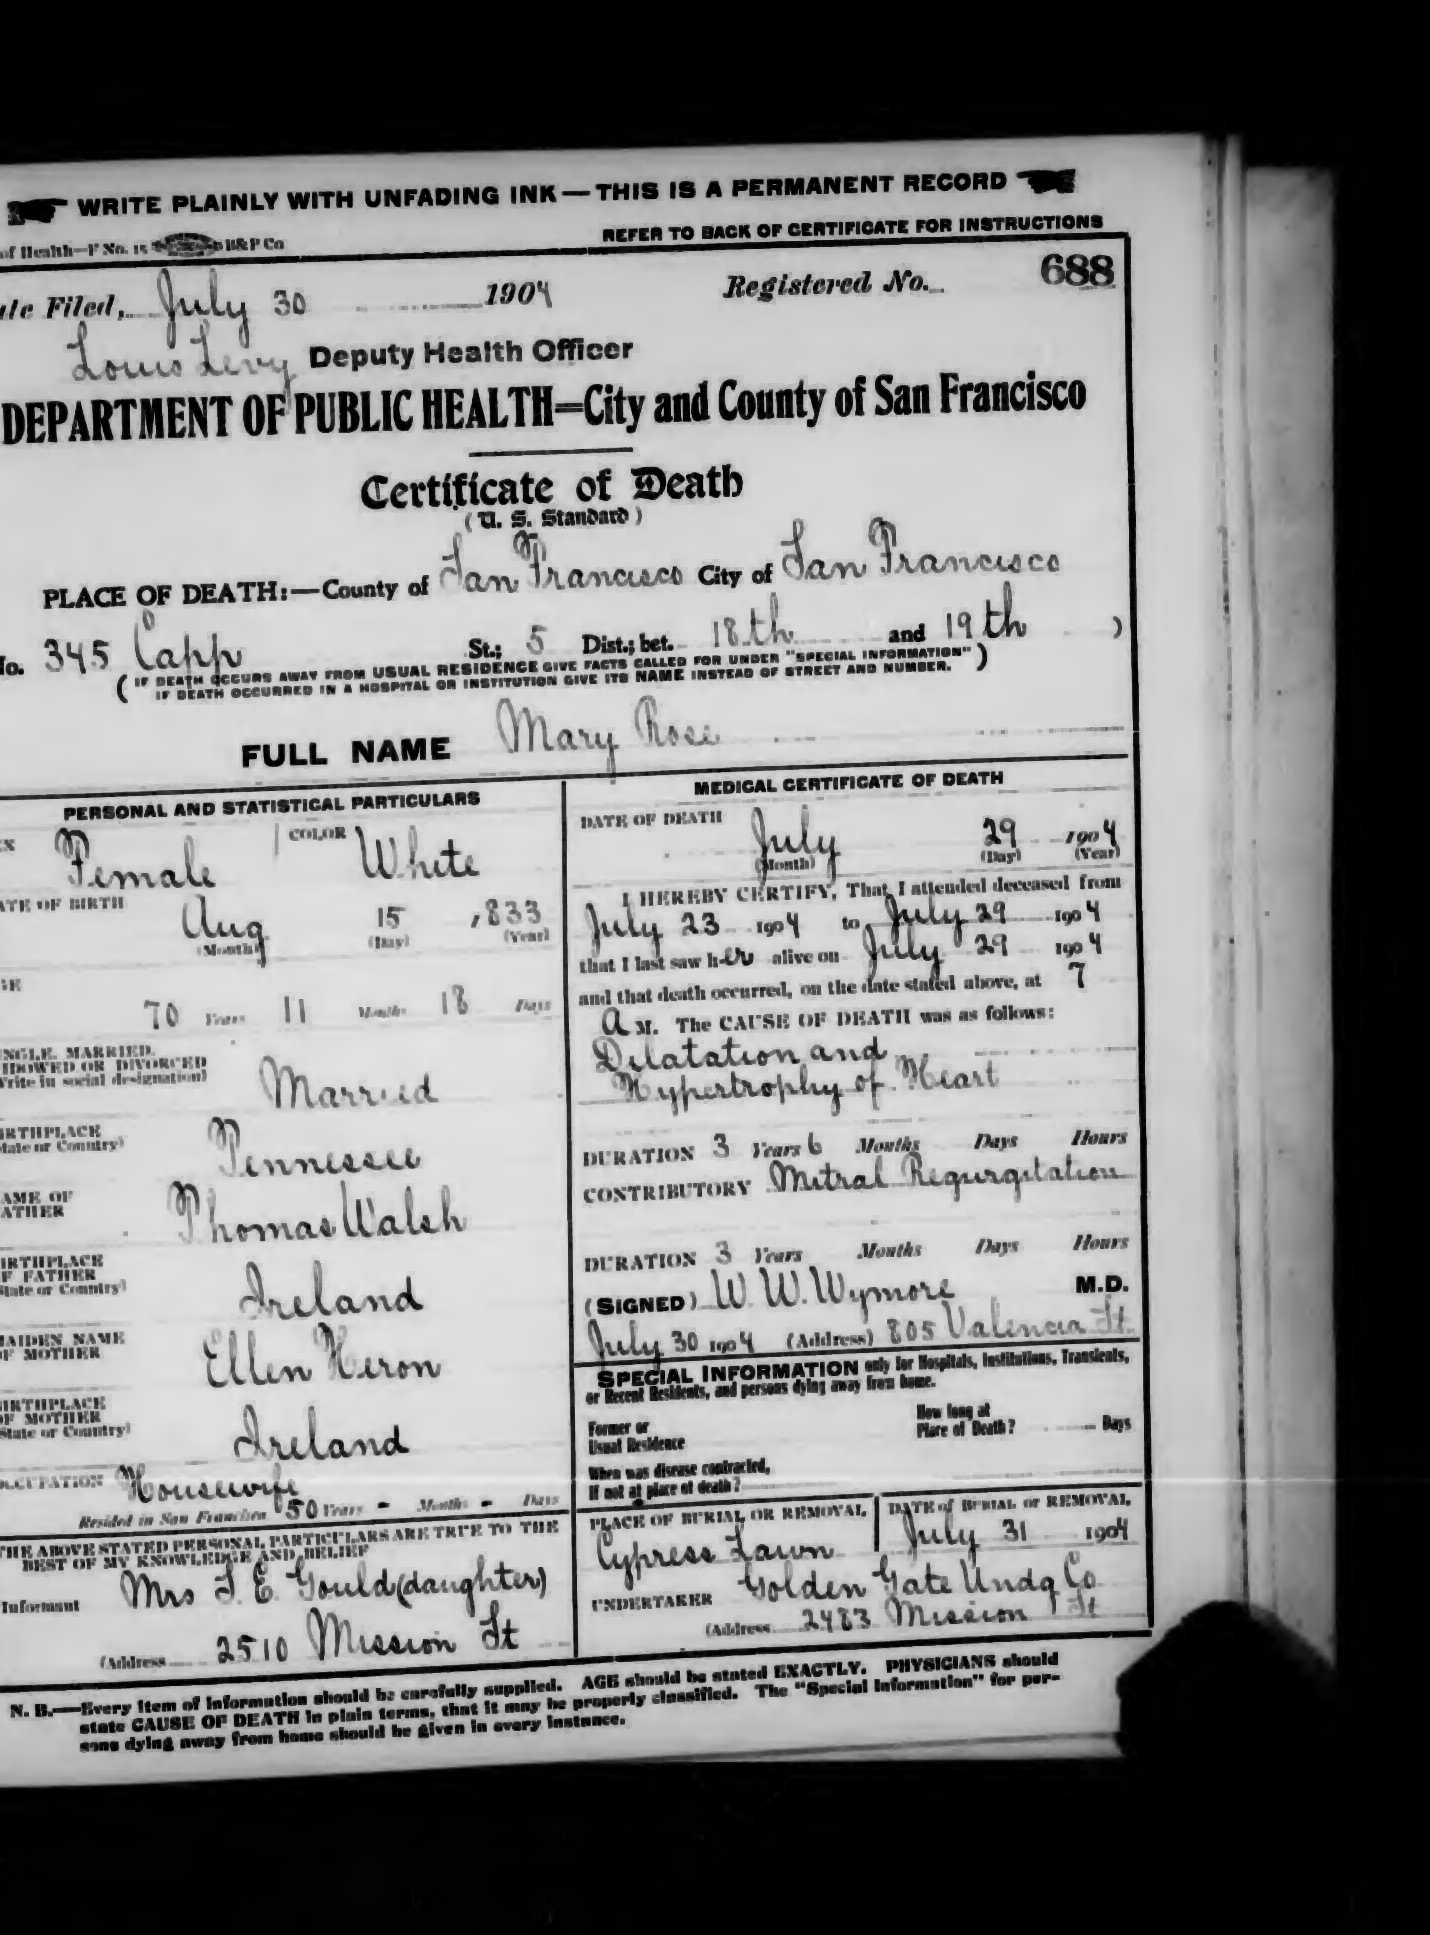 WRITE PLAINLY WITH UNFADING INK — THIS IS A PERMANENT RECORD
of Health—F No. 15 B&P Co
REFER TO BACK OF CERTIFICATE FOR INSTRUCTIONS
ate Filed, July 30 1904 Registered No. 688
Louis Levy Deputy Health Officer
DEPARTMENT OF PUBLIC HEALTH=City and County of San Francisco
Certificate of Death
(U. S. Standard)
PLACE OF DEATH:—County of San Francisco City of San Francisco
No. 345 Capp St.; 5 Dist.; bet. 18th and 19th )
( IF DEATH OCCURS AWAY FROM USUAL RESIDENCE GIVE FACTS CALLED FOR UNDER "SPECIAL INFORMATION" )
IF DEATH OCCURRED IN A HOSPITAL OR INSTITUTION GIVE ITS NAME INSTEAD OF STREET AND NUMBER.
FULL NAME Mary Rose
PERSONAL AND STATISTICAL PARTICULARS
EX Female COLOR White
ATE OF BIRTH
Aug 15 ,833
(Month) (Day) (Year)
GE
70 Years 11 Months 18 Days
INGLE, MARRIED,
IDOWED OR DIVORCED
Write in social designation)
Married
IRTHPLACE
State or Country)
Tennessee
AME OF
ATHER
Thomas Walsh
IRTHPLACE
F FATHER
State or Country)
Ireland
MAIDEN NAME
OF MOTHER
Ellen Heron
BIRTHPLACE
OF MOTHER
State or Country)
Ireland
OCCUPATION Housewife
Resided in San Francisco 50 Years - Months - Days
THE ABOVE STATED PERSONAL PARTICULARS ARE TRUE TO THE
BEST OF MY KNOWLEDGE AND BELIEF
Informant Mrs S. E. Gould (daughter)
(Address 2510 Mission St
MEDICAL CERTIFICATE OF DEATH
DATE OF DEATH
July 29 1904
(Month) (Day) (Year)
I HEREBY CERTIFY, That I attended deceased from
July 23 1904 to July 29 1904
that I last saw her alive on July 29 1904
and that death occurred, on the date stated above, at 7
A M. The CAUSE OF DEATH was as follows:
Dilatation and
Hypertrophy of Heart
DURATION 3 Years 6 Months Days Hours
CONTRIBUTORY Mitral Regurgitation
DURATION 3 Years Months Days Hours
(SIGNED) W. W. Wymore M.D.
July 30 1904 (Address) 805 Valencia St.
SPECIAL INFORMATION only for Hospitals, Institutions, Transients,
or Recent Residents, and persons dying away from home.
Former or
Usual Residence
How long at
Place of Death? Days
When was disease contracted,
If not at place of death?
PLACE OF BURIAL OR REMOVAL
Cypress Lawn
DATE of BURIAL or REMOVAL
July 31 1904
UNDERTAKER Golden Gate Undg Co
(Address 2483 Mission St
N. B.—Every item of information should be carefully supplied. AGE should be stated EXACTLY. PHYSICIANS should
state CAUSE OF DEATH in plain terms, that it may be properly classified. The "Special Information" for per-
sons dying away from home should be given in every instance.